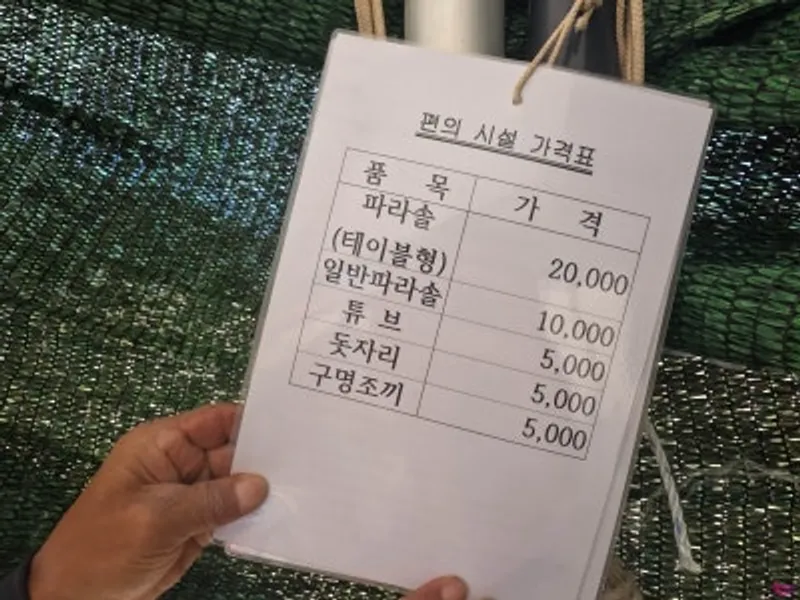 편의 시설 가격표
품 목 가 격
파라솔
(테이블형) 20,000
일반파라솔 10,000
튜 브 5,000
돗자리 5,000
구명조끼 5,000